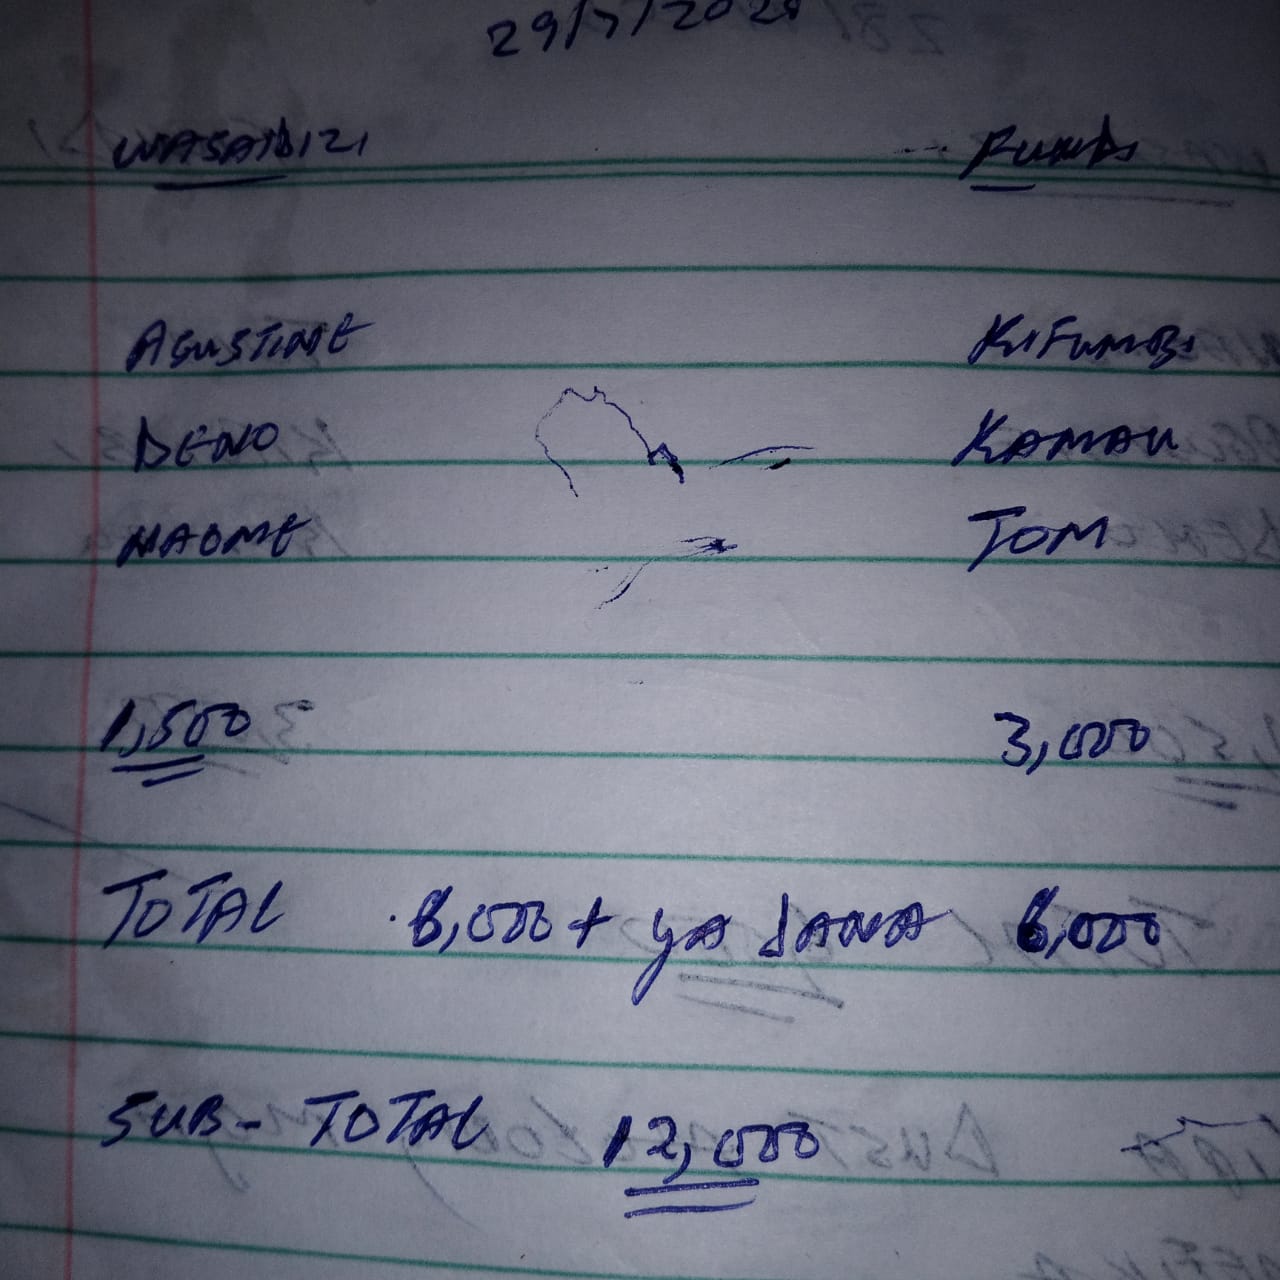 29/7/2025
WASAIDIZI FUNDI
AGUSTINE KIFUMBI
DENO KAMAU
NAOME TOM
1,500 3,000
TOTAL 6,000 + YA JANA 6,000
SUB-TOTAL 12,000